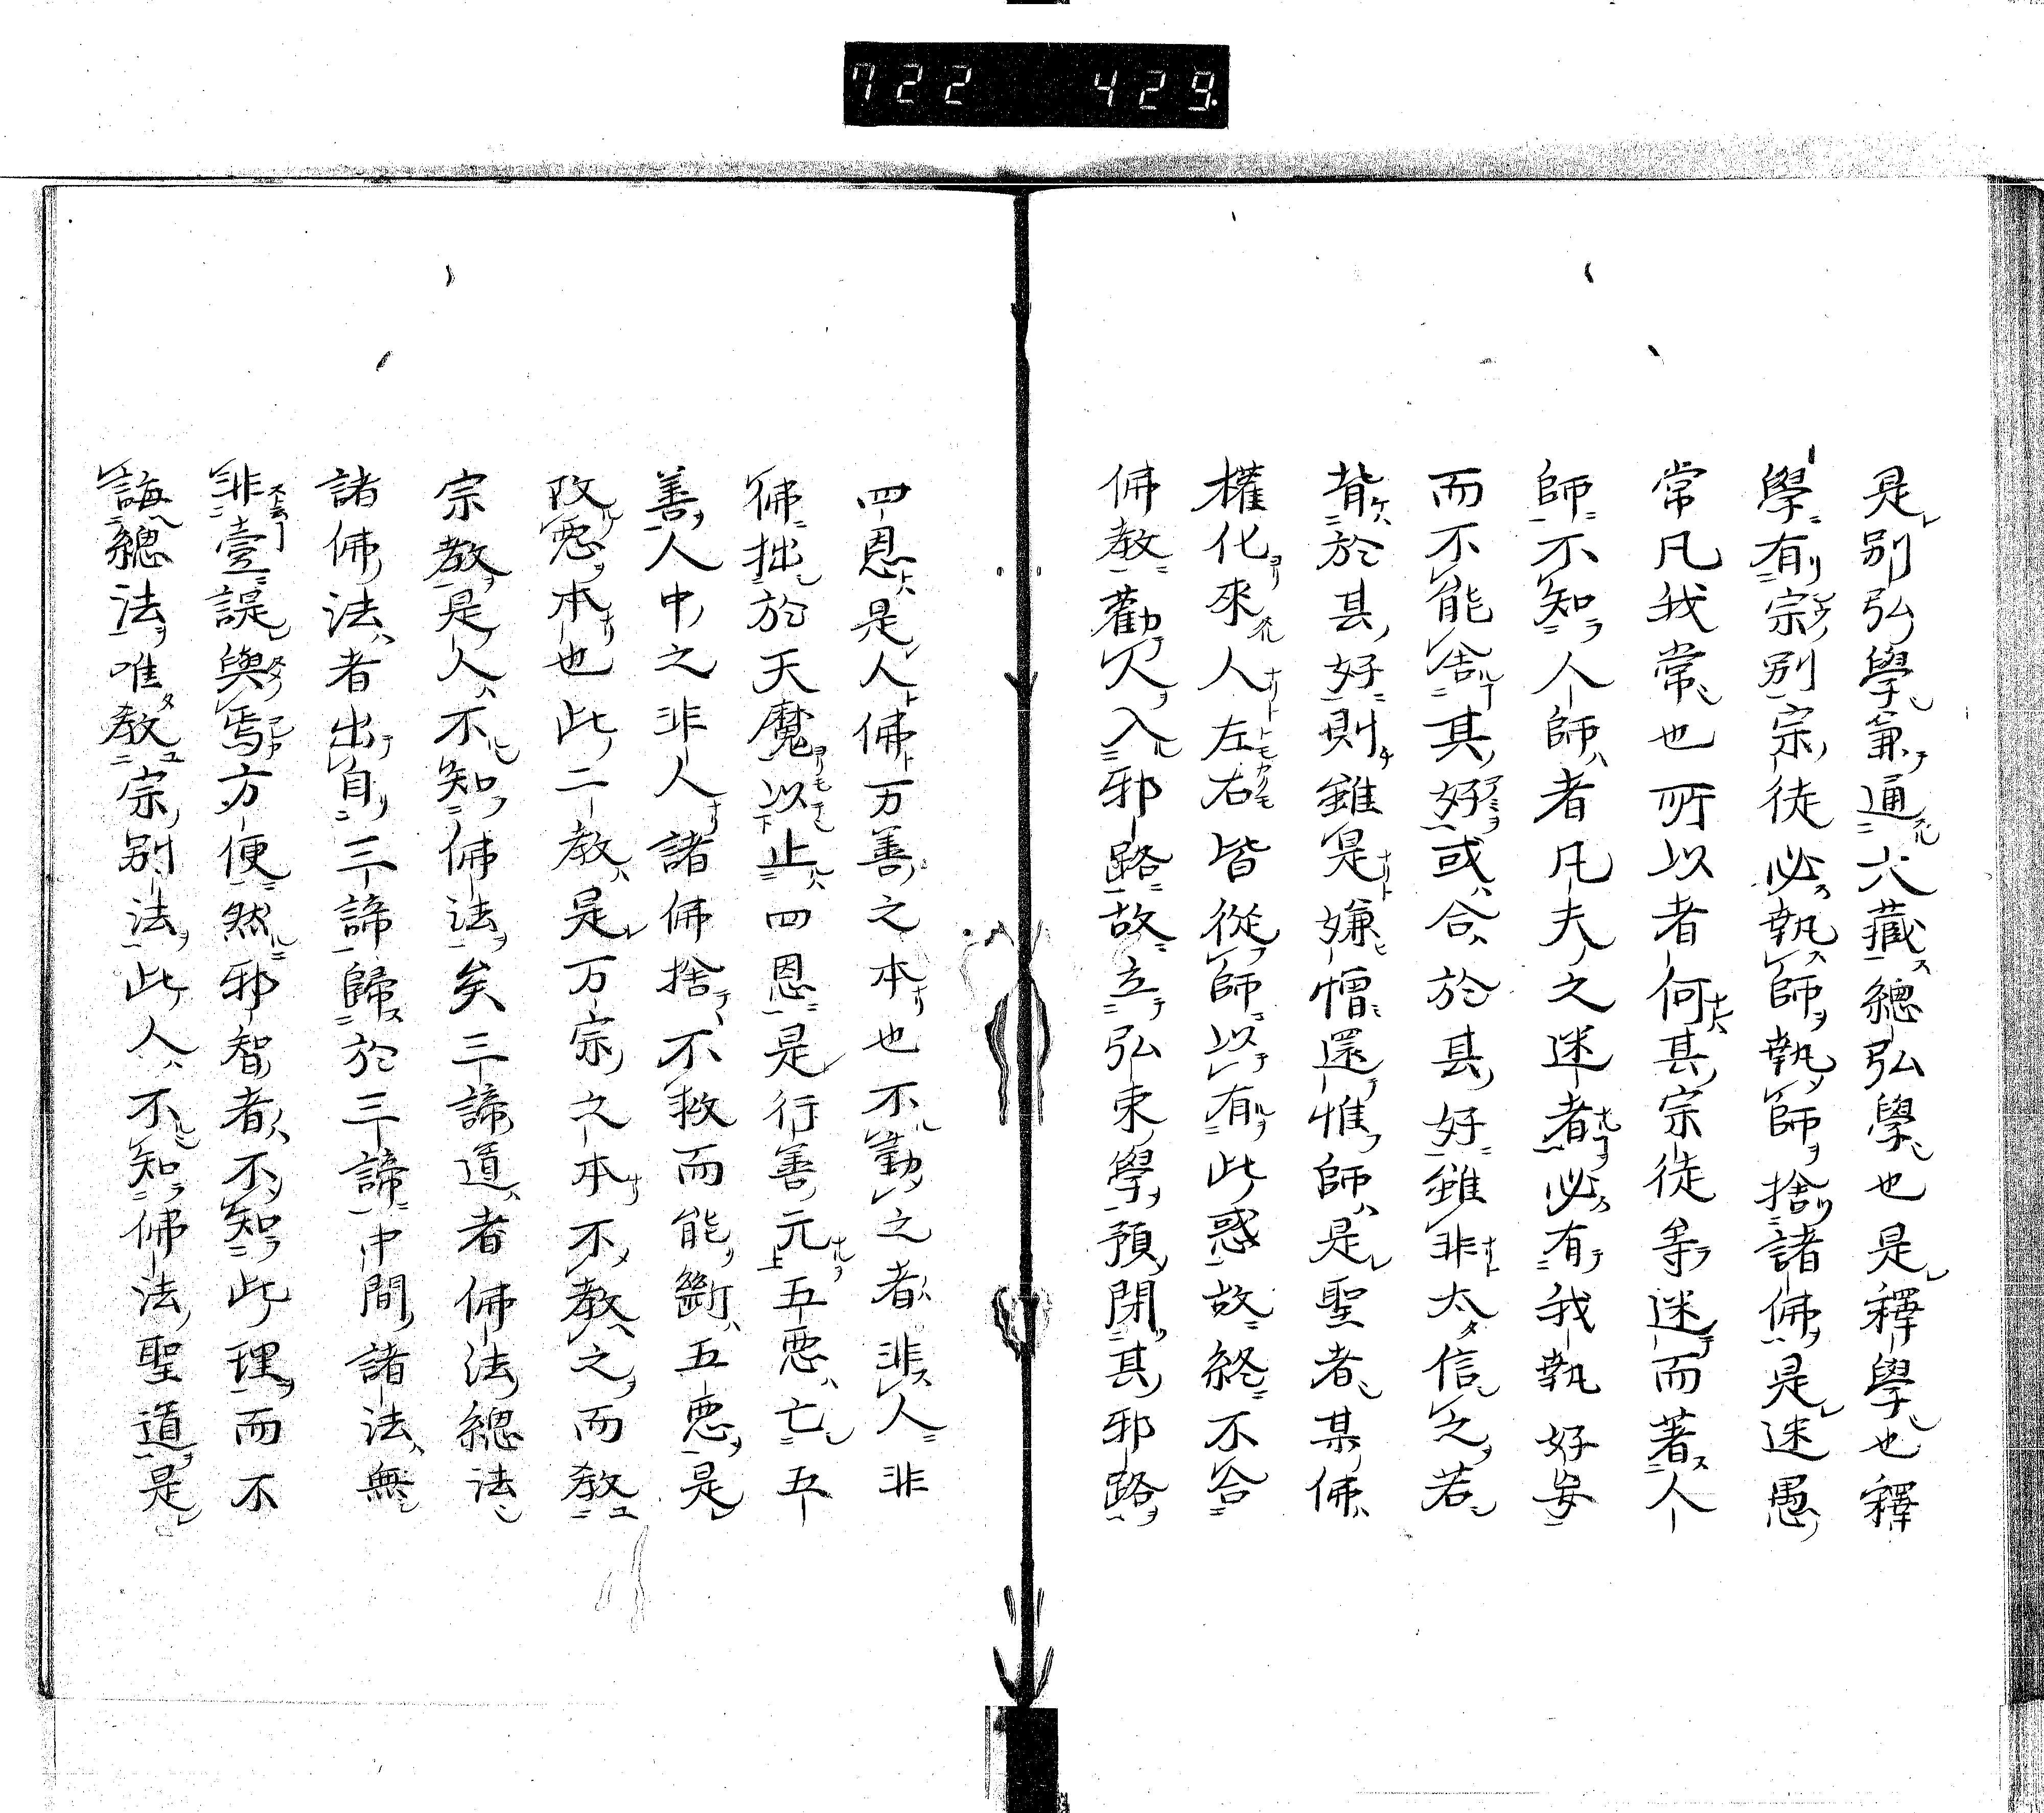 722 429
是別弘學兼通六藏總弘學也是釋學也釋
學有宗別宗徒必執師執師捨諸佛是迷愚
常凡我常也所以者何其宗徒牟迷而著人
師不知人師者凡夫之迷者必有我執好妄
而不能舍其好或合於其好雖非太信之若
背於其好則雖是嫌憎還惟師是聖者某佛
權化來人左右皆從師以有此惑故終不合
佛教勸人入邪路故立弘束學預閉其邪路
四恩是人佛万善之本也不勸之者非人非
佛拙於天魔以止四恩是行善元五惡亡五
善人中之非人諸佛捨不救而能斷五惡是
改惡本也此二教是万宗之本不教之而教
宗教是人不知佛法矣三諦道者佛法總法
諸佛法者出自三諦歸於三諦中間諸法無
非壹誤與焉方便然邪智者不知此理而不
誨總法唯教宗別法此人不知佛法聖道是